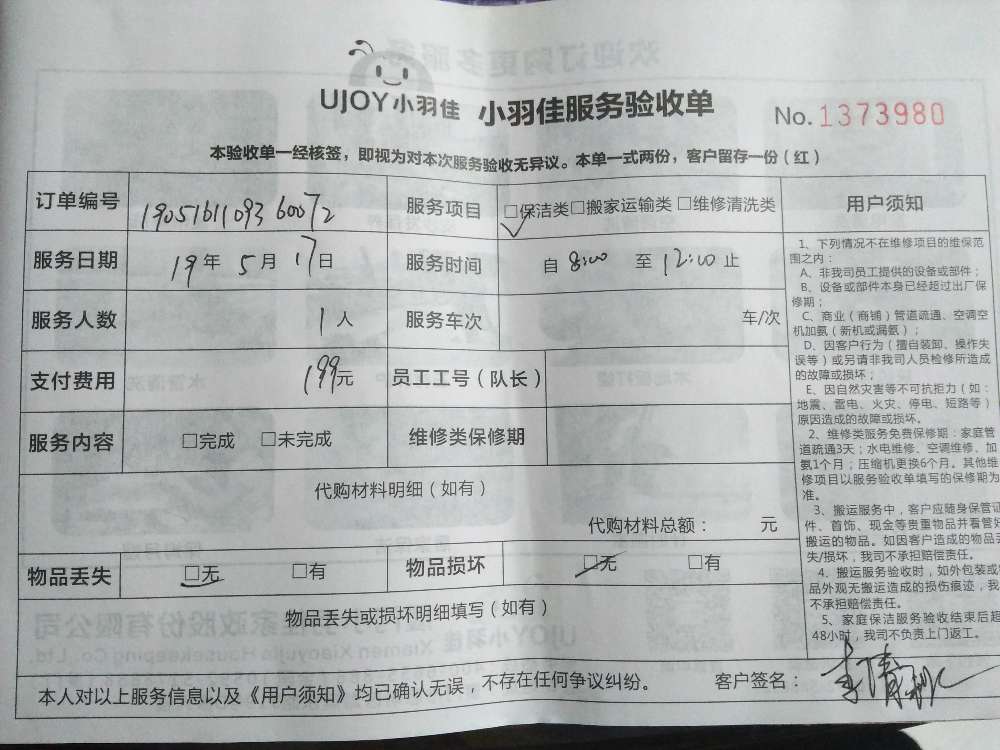 UJOY小羽佳 小羽佳服务验收单 No.1373980
本验收单一经核签，即视为对本次服务验收无异议。本单一式两份，客户留存一份（红）
订单编号 190516110936 60072 服务项目 □保洁类□搬家运输类 □维修清洗类
服务日期 19年 5月 17日 服务时间 自 8:00 至 12:00 止
服务人数 1人 服务车次 车/次
支付费用 199元 员工工号（队长）
服务内容 □完成 □未完成 维修类保修期
代购材料明细（如有）
代购材料总额： 元
物品丢失 □无 □有 物品损坏 □无 □有
物品丢失或损坏明细填写（如有）
本人对以上服务信息以及《用户须知》均已确认无误，不存在任何争议纠纷。 客户签名：
用户须知
1、下列情况不在维修项目的维保范
围之内：
A、非我司员工提供的设备或部件；
B、设备或部件本身已经超过出厂保
修期；
C、商业（商铺）管道疏通、空调空
机加氨（新机或漏氨）；
D、因客户行为（擅自装卸、操作失
误等）或另请非我司人员检修所造成
的故障或损坏；
E、因自然灾害等不可抗拒力（如：
地震、雷电、火灾、停电、短路等）
原因造成的故障或损坏。
2、维修类服务免费保修期：家庭管
道疏通3天；水电维修、空调维修、加
氨1个月；压缩机更换6个月。其他维
修项目以服务验收单填写的保修期为
准。
3、搬运服务中，客户应随身保管证
件、首饰、现金等贵重物品并看管好
搬运的物品。如因客户造成的物品丢
失/损坏，我司不承担赔偿责任。
4、搬运服务验收时，如外包装或
品外观无搬运造成的损伤痕迹，我
不承担赔偿责任。
5、家庭保洁服务验收结束后超
48小时，我司不负责上门返工。